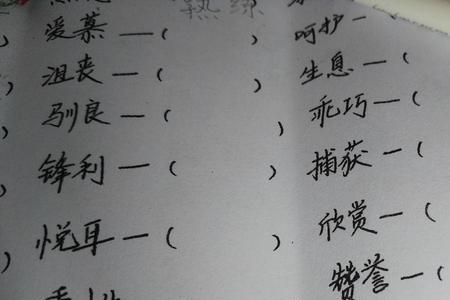 熟练
爱慕—( ) 呵护—(
沮丧—( ) 生息—(
驯良—( ) 乖巧—(
锋利—( ) 捕获—(
悦耳—( ) 欣赏—(
赞誉—(